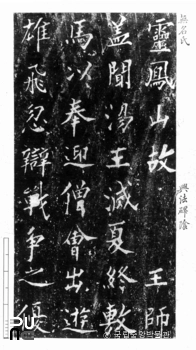 無名氏
興法碑陰
靈鳳山故 王師
盖聞湯王滅夏終敷
馬以奉迎僧會出遊
雄飛忽辯戰争之優
국립중앙박물관